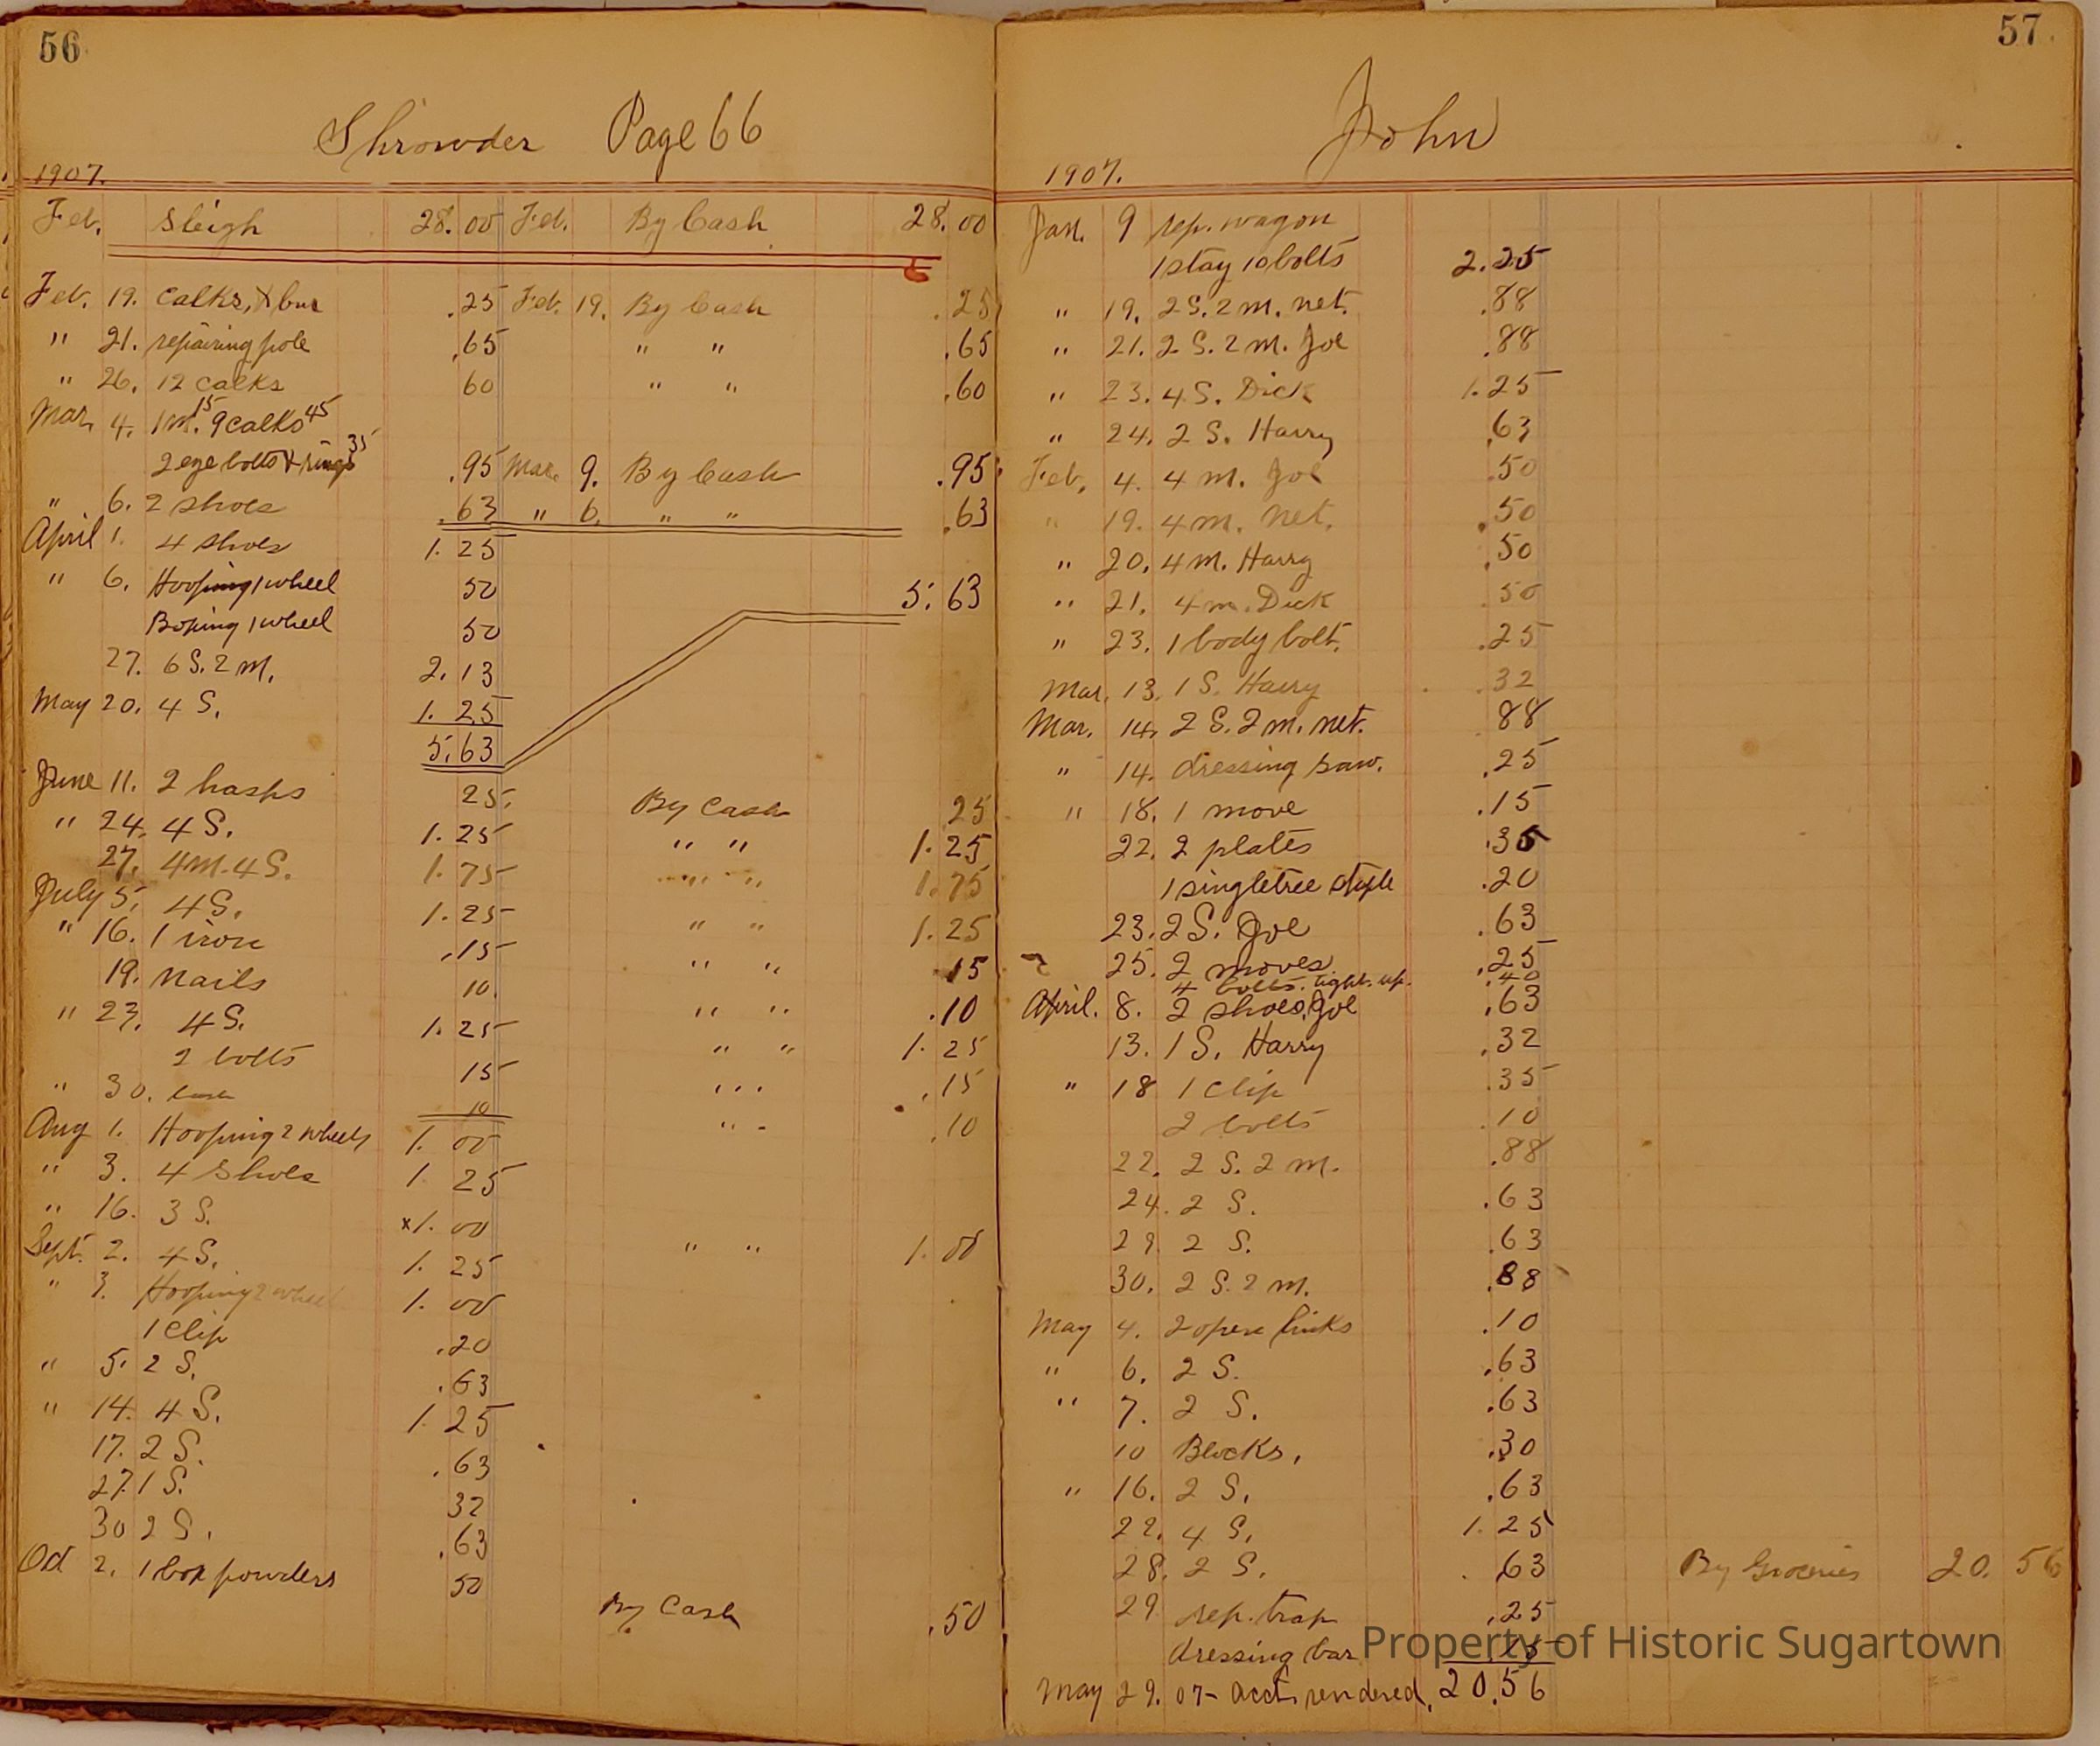 56
Shrowder Page 66
1907.
Feb. Sleigh 28.00 Feb. By Cash 28.00
Feb. 19. calks, & bur .25 Feb. 19. By Cash .25
" 21. repairing pole .65 " " .65
" 26. 12 calks 60 " " .60
Mar. 4. 1 m. 15 9 calks 45
2 eye bolts & rings 35 .95 Mar. 9. By Cash .95
" 6. 2 shoes .63 " 6. " " .63
April 1. 4 shoes 1.25
" 6. Hooping 1 wheel 50 5.63
1 wheel 50
27. 6 S. 2 m. 2.13
May 20. 4 S. 1.25
5.63
June 11. 2 hasps 25. By Cash 25
" 24. 4 S. 1.25 " " 1.25
27. 4 m. 4 S. 1.75 " " 1.75
July 5. 4 S. 1.25 " " 1.25
" 16. 1 iron .15 " " 15
19. Nails 10. " " .10
" 23. 4 S. 1.25 " " 1.25
2 bolts 15 " " .15
" 30. 10 " " .10
Aug 1. Hooping 2 wheels 1.00
" 3. 4 Shoes 1 25
" 16. 3 S. x1.00 " " 1.00
Sept. 2. 4 S. 1.25
" 3. Hooping 2 wheel 1.00
1 Clip .20
" 5. 2 S. .63
" 14. 4 S. 1.25
17. 2 S. .63
27. 1 S. 32
30 2 S. .63
Oct 2. 1 box powders 50
By Cash .50
57.
John
1907.
Jan. 9 rep. wagon
1 stay 10 bolts 2.25
" 19. 2 S. 2 m. net. .88
" 21. 2 S. 2 m. Joe .88
" 23. 4 S. Dick 1.25
" 24. 2 S. Harry .63
Feb. 4. 4 m. Joe .50
" 19. 4 m. net. .50
" 20. 4 m. Harry .50
" 21. 4 m. Dick .50
" 23. 1 body bolt. .25
Mar. 13. 1 S. Harry .32
Mar. 14. 2 S. 2 m. net. 88
" 14. dressing saw. .25
" 18. 1 move .15
22. 2 plates .35
1 singletree staple .20
23. 2 S. Joe .63
25. 2 moves .25
4 bolts. tight. up. .40
April. 8. 2 shoes, Joe .63
13. 1 S. Harry .32
" 18 1 Clip .35
2 bolts .10
22. 2 S. 2 m. .88
24. 2 S. .63
29 2 S. .63
30. 2 S. 2 m. .88
May 4. 2 open links .10
" 6. 2 S. .63
" 7. 2 S. .63
10 Blocks. .30
" 16. 2 S. .63
22. 4 S. 1.25
28. 2 S. .63 By Groceries 20.56
29 rep. trap .25
dressing bar 15
May 29. 07- acct. rendered. 20.56
Property of Historic Sugartown